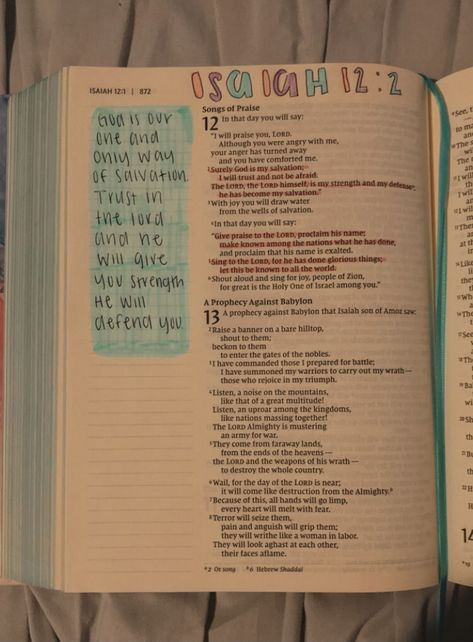 ISAIAH 12:1 | 872
ISAIAH 12:2
God is our
one and
only way
of salvation.
Trust in
the lord
and he
will give
you strength
He will
defend you.
Songs of Praise
12 In that day you will say:
"I will praise you, LORD.
Although you were angry with me,
your anger has turned away
and you have comforted me.
2 Surely God is my salvation;
I will trust and not be afraid.
The LORD, the LORD himself, is my strength and my defense;
he has become my salvation."
3 With joy you will draw water
from the wells of salvation.
4 In that day you will say:
"Give praise to the LORD, proclaim his name;
make known among the nations what he has done,
and proclaim that his name is exalted.
5 Sing to the LORD, for he has done glorious things;
let this be known to all the world.
6 Shout aloud and sing for joy, people of Zion,
for great is the Holy One of Israel among you."
A Prophecy Against Babylon
13 A prophecy against Babylon that Isaiah son of Amoz saw:
2 Raise a banner on a bare hilltop,
shout to them;
beckon to them
to enter the gates of the nobles.
3 I have commanded those I prepared for battle;
I have summoned my warriors to carry out my wrath—
those who rejoice in my triumph.
4 Listen, a noise on the mountains,
like that of a great multitude!
Listen, an uproar among the kingdoms,
like nations massing together!
The LORD Almighty is mustering
an army for war.
5 They come from faraway lands,
from the ends of the heavens—
the LORD and the weapons of his wrath—
to destroy the whole country.
6 Wail, for the day of the LORD is near;
it will come like destruction from the Almighty.
7 Because of this, all hands will go limp,
every heart will melt with fear.
8 Terror will seize them,
pain and anguish will grip them;
they will writhe like a woman in labor.
They will look aghast at each other,
their faces aflame.
2 Or song 6 Hebrew Shaddai